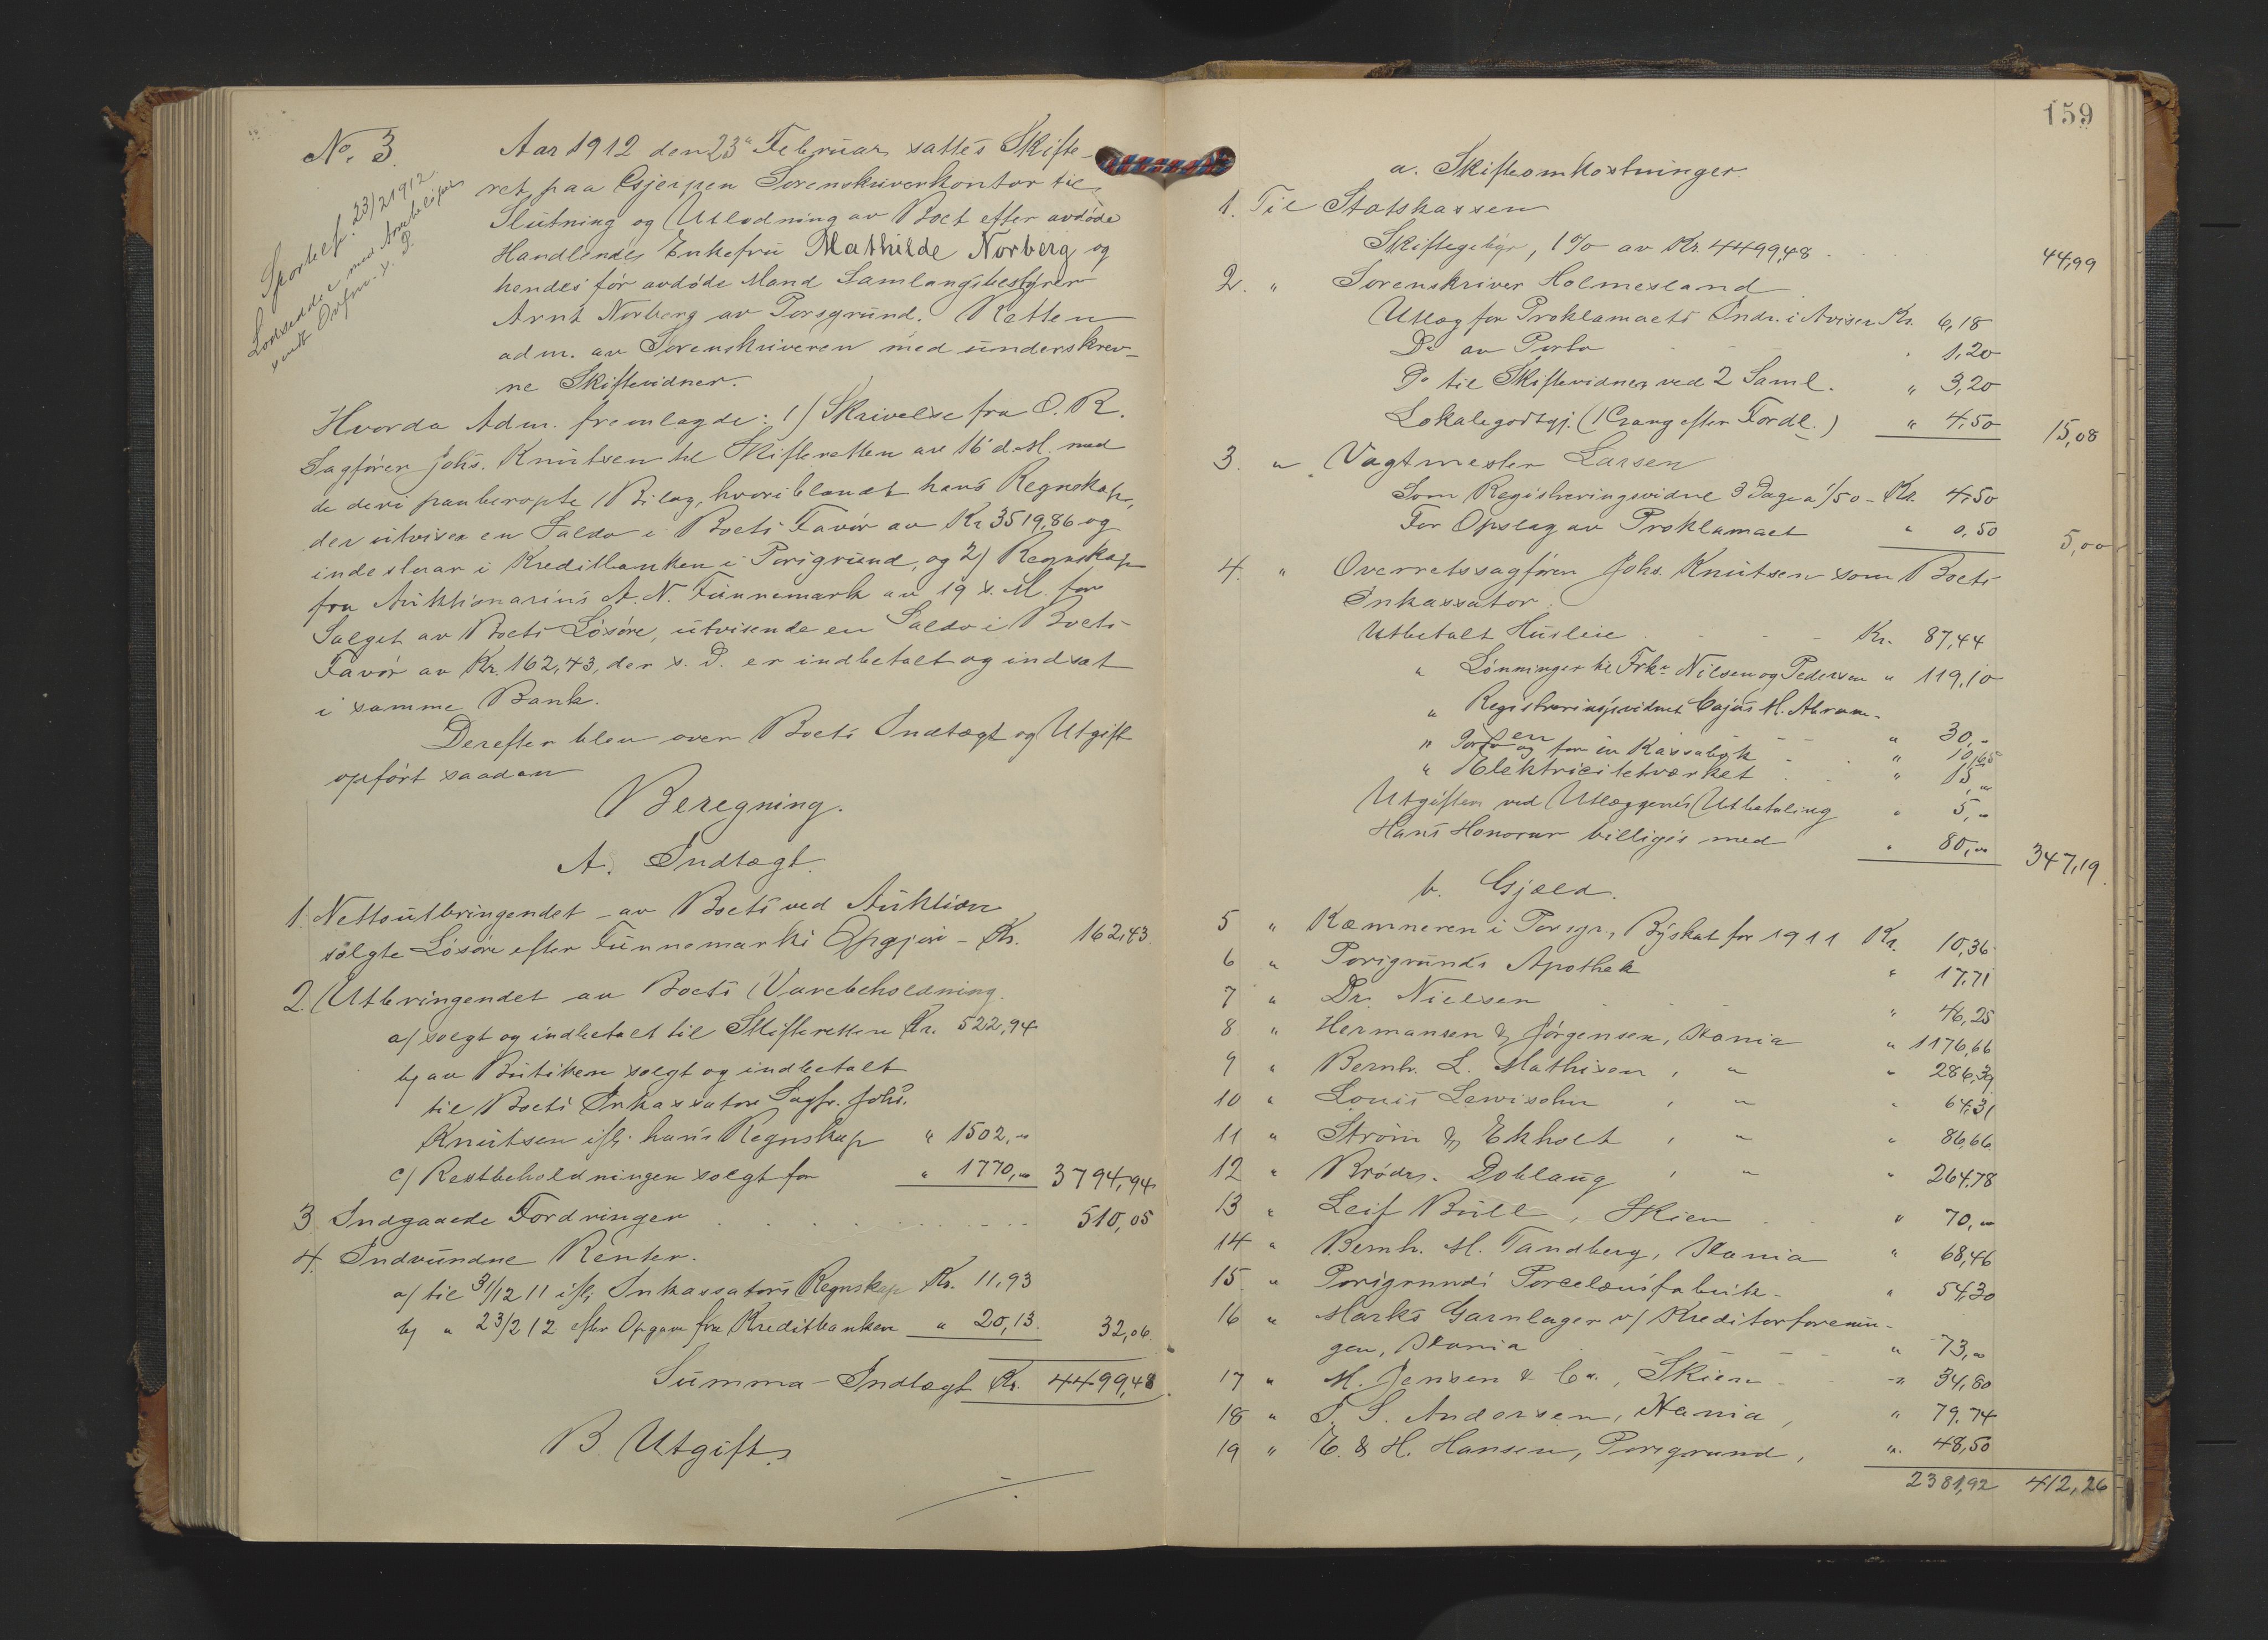 No. 3.
Sportelf. 23/2 1912.
Lodsedde med Anbeløpet
sendt Ovfm. s. D.
Aar 1912 den 23de Februar sattes Skifte-
ret paa Gjerpen Sorenskriverkontor til
Slutning og Utlodning av Boet efter avdøde
Handlende, Enkefru Mathilde Norberg og
hendes før avdøde Mand Samlagsbestyrer
Arnt Norberg av Porsgrund. Retten
adm. av Sorenskriveren med underskrev-
ne Skiftevidner.
Hvorda Adm. fremlagde: 1) Skrivelse fra O. R.
Sagfører Johs. Knutsen til Skifteretten av 16 d. M. med
de deri paaberopte Bilag, hvoriblandt hans Regnskap,
der utviser en Saldo i Boets Favør av Kr. 3519,86 og
indestaar i Kreditbanken i Porsgrund, og 2) Regnskap
fra Auktionarius A. N. Funnemark av 19 s. M. for
Salget av Boets Løsøre, utvisende en Saldo i Boets
Favør av Kr. 162,43, der s. D. er indbetalt og indsat
i samme Bank.
Derefter blev over Boets Indtægt og Utgift
opført saadan
Beregning.
A. Indtægt.
1. Nettoutbringendet av Boets ved Auktion
solgte Løsøre efter Funnemarks Opgjør - Kr. 162,43.
2. Utbringendet av Boets Varebeholdning.
a/ solgt og indbetalt til Skifteretten Kr. 522,94
b/ av Butiken solgt og indbetalt
til Boets Inkassator Sagfr. Johs.
Knutsen ifl. hans Regnskap " 1502,"
c/ Restbeholdningen solgt for " 1770,00 3794,94
3. Indgaaede Fordringer 510,05
4. Indvundne Renter.
a/ til 31/12 11 ifl. Inkassators Regnskap Kr. 11,93
b/ " 23/2 12 efter Opgave fra Kreditbanken " 20,13. 32,06.
Summa Indtægt Kr. 4499,48.
B. Utgift.
159
a. Skifteomkostninger.
1. Til Statskassen
Skiftegebyr, 1% av Kr. 4499,48 44,99
2. " Sorenskriver Holmesland
Utlæg for Proklamaets Indr. i Aviser Kr. 6,18
Do av Porto " 1,20
Do til Skiftevidner ved 2 Saml. " 3,20
Lokalegodtgj. (1 Gang efter Fordl.) " 4,50 15,08
3. " Vagtmester Larsen
Som Registreringsvidne 3 Dage a 1/50 - Kr. 4,50
For Opslag av Proklamaet " 0,50 5,00
4. " Overretssagfører Johs. Knutsen som Boets
Inkassator.
Utbetalt Husleie Kr. 87,44
" Lønninger til Frkn Nilsen og Pedersen " 119,10
" Registreringsvidnet Cajus M. Abram-
en " 30,-
" Porto og for en Kassabok " 10,65
" Elektricitetværket " 15,00
Utgiften ved Utlæggenes Utbetaling " 5,00
Hans Honorar billiges med " 80,00 347,19.
b. Gjæld.
5 " Kæmneren i Porsgr., Byskat for 1911 Kr. 10,36
6 " Porsgrunds Apothek " 17,71
7 " Dr. Nielsen " 46,25
8 " Hermansen & Jørgensen, Kania " 1176,66
9 " Bernh. L. Mathisen, " " 286,39
10 " Louis Lewisohn, " " 64,31
11 " Strøm & Ekholt, " " 86,66
12 " Brødr. Dobloug, " " 264,78
13 " Leif Bull, Skien " 70,00
14 " Bernh. M. Tandberg, Kania " 68,46
15 " Porsgrunds Porcelænsfabrik " 54,30
16 " Marks Garnlager v/ Kreditorforenin-
gen, Kania " 73,00
17 " M. Jensen & Co., Skien " 34,80
18 " T. S. Andersen, Kania, " 79,74
19 " E. & H. Hansen, Porsgrund, " 48,50
2381,92 412,26